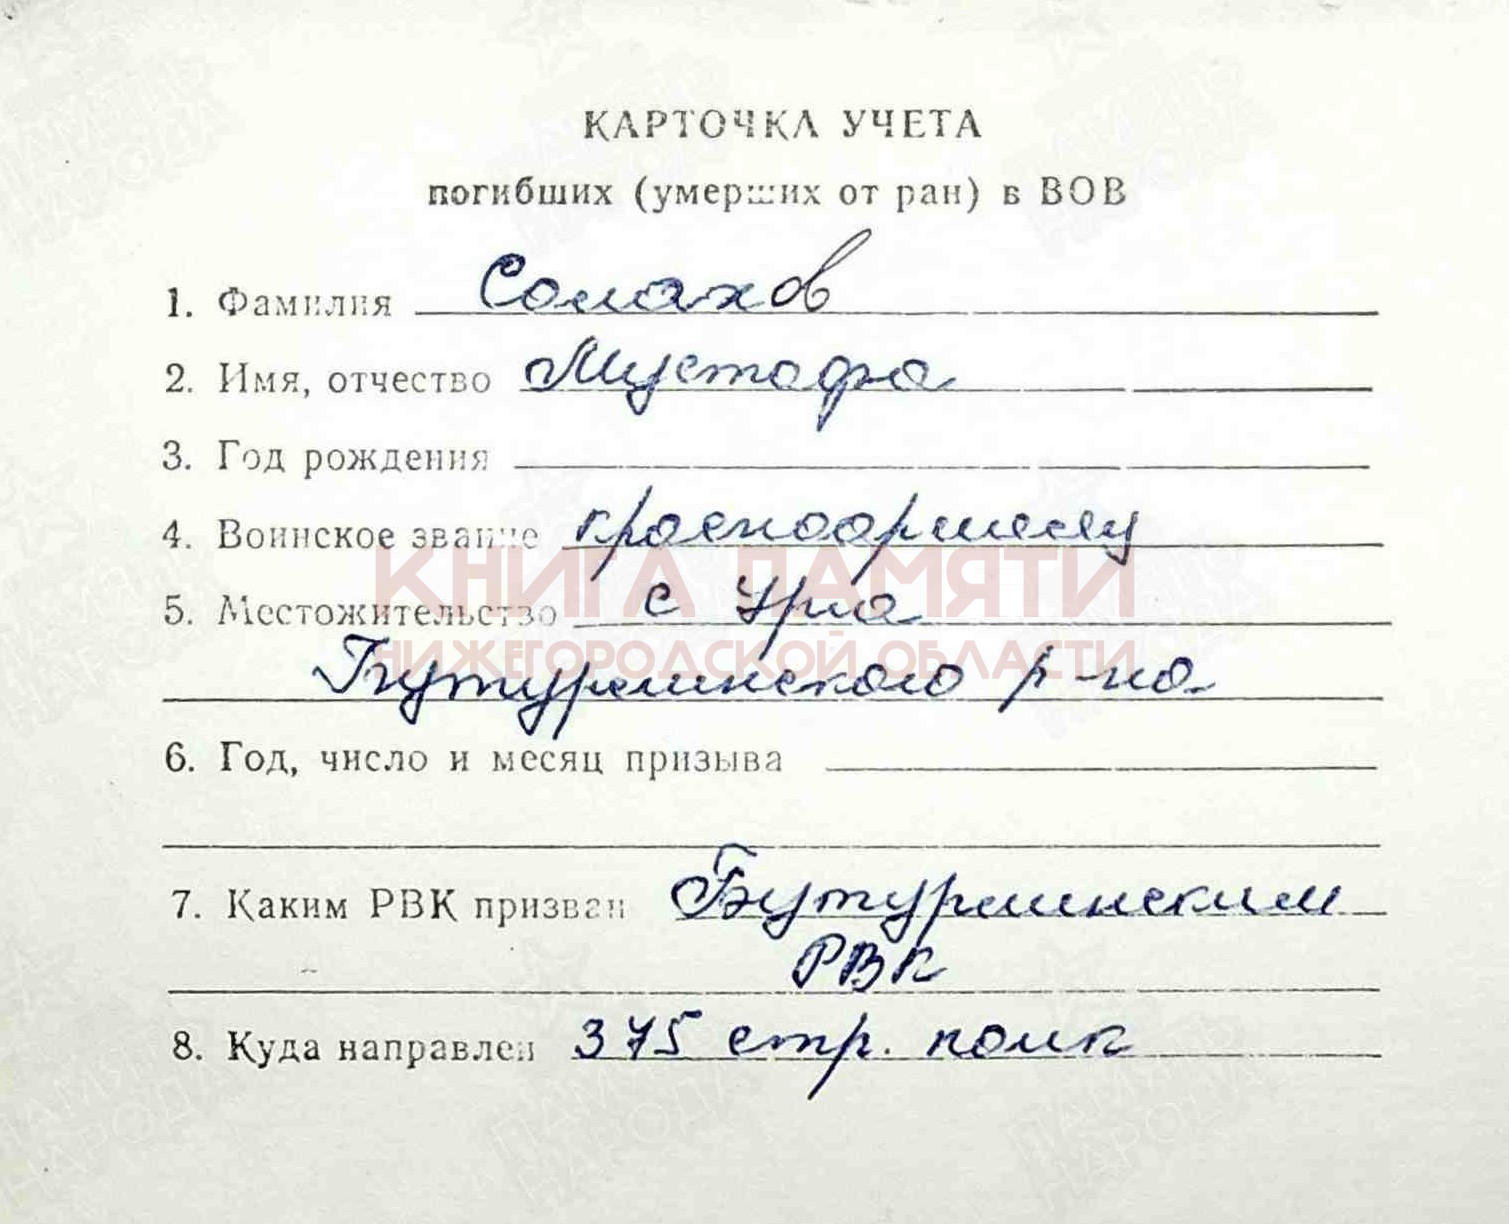 КАРТОЧКА УЧЕТА
погибших (умерших от ран) в ВОВ
1. Фамилия Солахов
2. Имя, отчество Мустафа
3. Год рождения
4. Воинское звание красноармеец
5. Местожительство с Ура
Бутурлинского р-на
6. Год, число и месяц призыва
7. Каким РВК призван Бутурлинским
РВК
8. Куда направлен 375 стр. полк
КНИГА ПАМЯТИ
НИЖЕГОРОДСКОЙ ОБЛАСТИ
ПАМЯТЬ НАРОДА